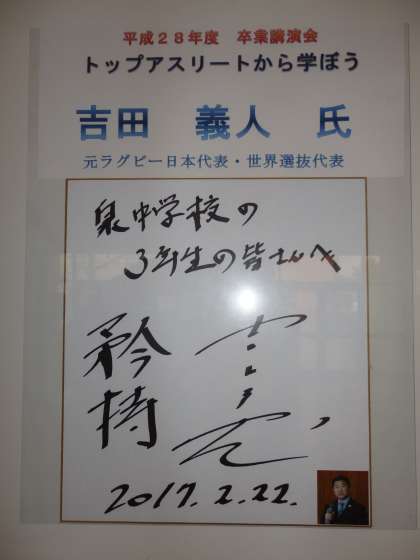 平成２８年度　卒業講演会
トップアスリートから学ぼう
吉田　義人　氏
元ラグビー日本代表・世界選抜代表
泉中学校の
3年生の皆さんへ
矜持
2017.2.22.